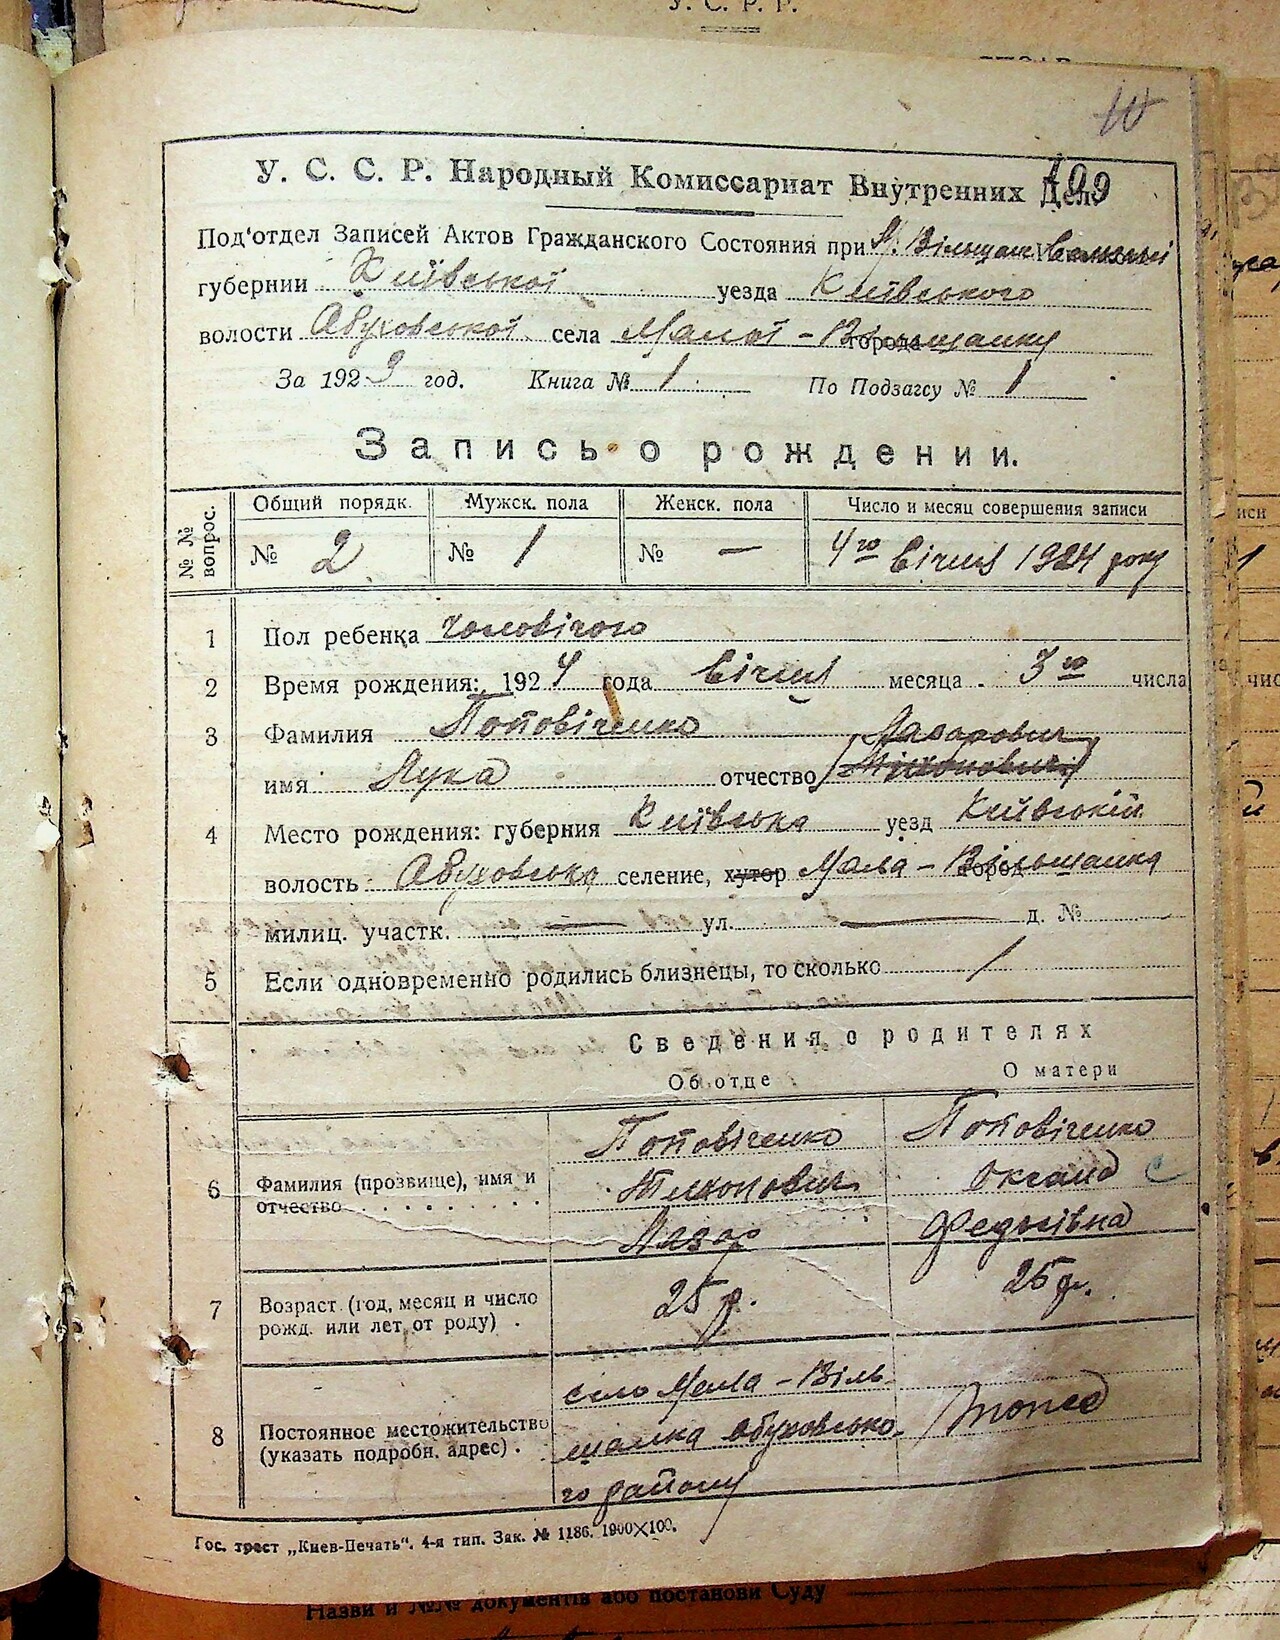 У. С. Р. Р.
10
109
У. С. С. Р. Народный Комиссариат Внутренних Дел.
Под'отдел Записей Актов Гражданского Состояния при М. Вільшанській
губернии Київської уезда Київського
волости Обуховської села Малої - Вільшанки города
За 1923 год. Книга № 1 По Подзагсу № 1
Запись о рождении.
№ № вопрос. Общий порядк. Мужск. пола Женск. пола Число и месяц совершения записи
№ 2 № 1 № — 4го Січня 1924 року
1 Пол ребенка чоловічого
2 Время рождения: 1924 года Січня месяца 3го числа
3 Фамилия Поповіченко Лазарович
имя Лука отчество (Тихонович)
4 Место рождения: губерния Київська уезд Київський
волость Обуховська селение, хутор Мала - Вільшанка город
милиц. участк. — ул. — д. №
5 Если одновременно родились близнецы, то сколько /
Сведения о родителях
Об отце О матери
Поповіченко Поповіченко
6 Фамилия (прозвище), имя и Тихонович Оксана С
отчество Лазар Федосівна
7 Возраст (год, месяц и число 25 р. 25 р.
рожд. или лет от роду) .
село Мала - Віль-
8 Постоянное местожительство шанка Обуховсько- тоже
(указать подробн. адрес) .
го району
Гос. трест „Киев-Печать". 4-я тип. Зак. № 1186. 1900×100.
Назви й №№ документів або постанови Суду